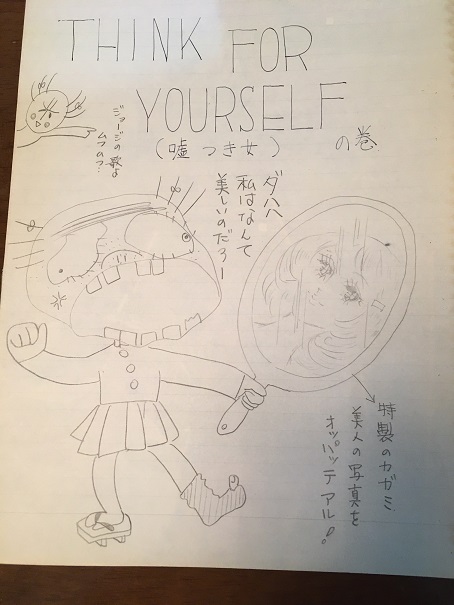 THINK FOR
YOURSELF
(嘘つき女)
の巻
ジョージの歌よ
ムフのフ…
ダハハ
私はなんて
美しいのだろー
特製のカガミ
美人の写真を
オッパッテアル!